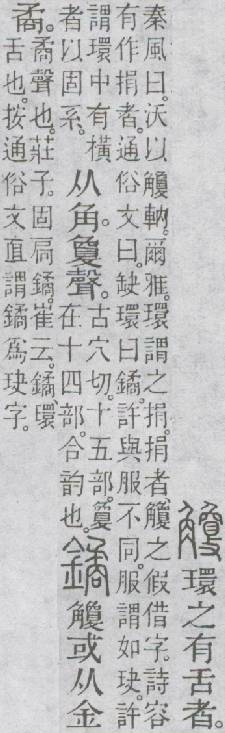 觼環之有舌者。
秦風曰。沃以觼軜。爾雅。環謂之捐。捐者、觼之假借字。詩容
有作捐者。通俗文曰。缺環曰鐍。許與服不同。服謂如玦。許
謂環中有橫
者以固系。
从角敻聲。
古穴切。十五部。敻
在十四部。合韵也。
鐍觼或从金
矞。
矞聲也。莊子。固扃鐍。崔云。鐍、環
舌也。按通俗文直謂鐍爲玦字。